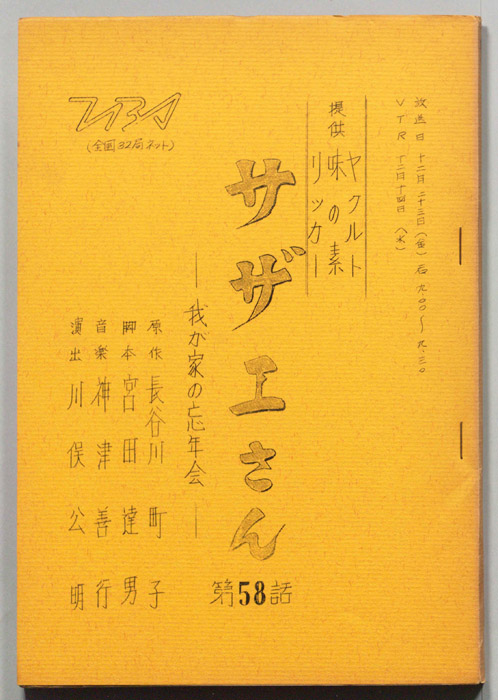 放送日 十二月二十三日(金)后九.〇〇〜九.三〇
VTR 十二月十四日(水)
提供
ヤクルト
味の素
リッカー
TBS
(全国32局ネット)
サザエさん
第58話
―我が家の忘年会―
原作 長谷川町子
脚本 宮田達男
音楽 神津善行
演出 川俣公明